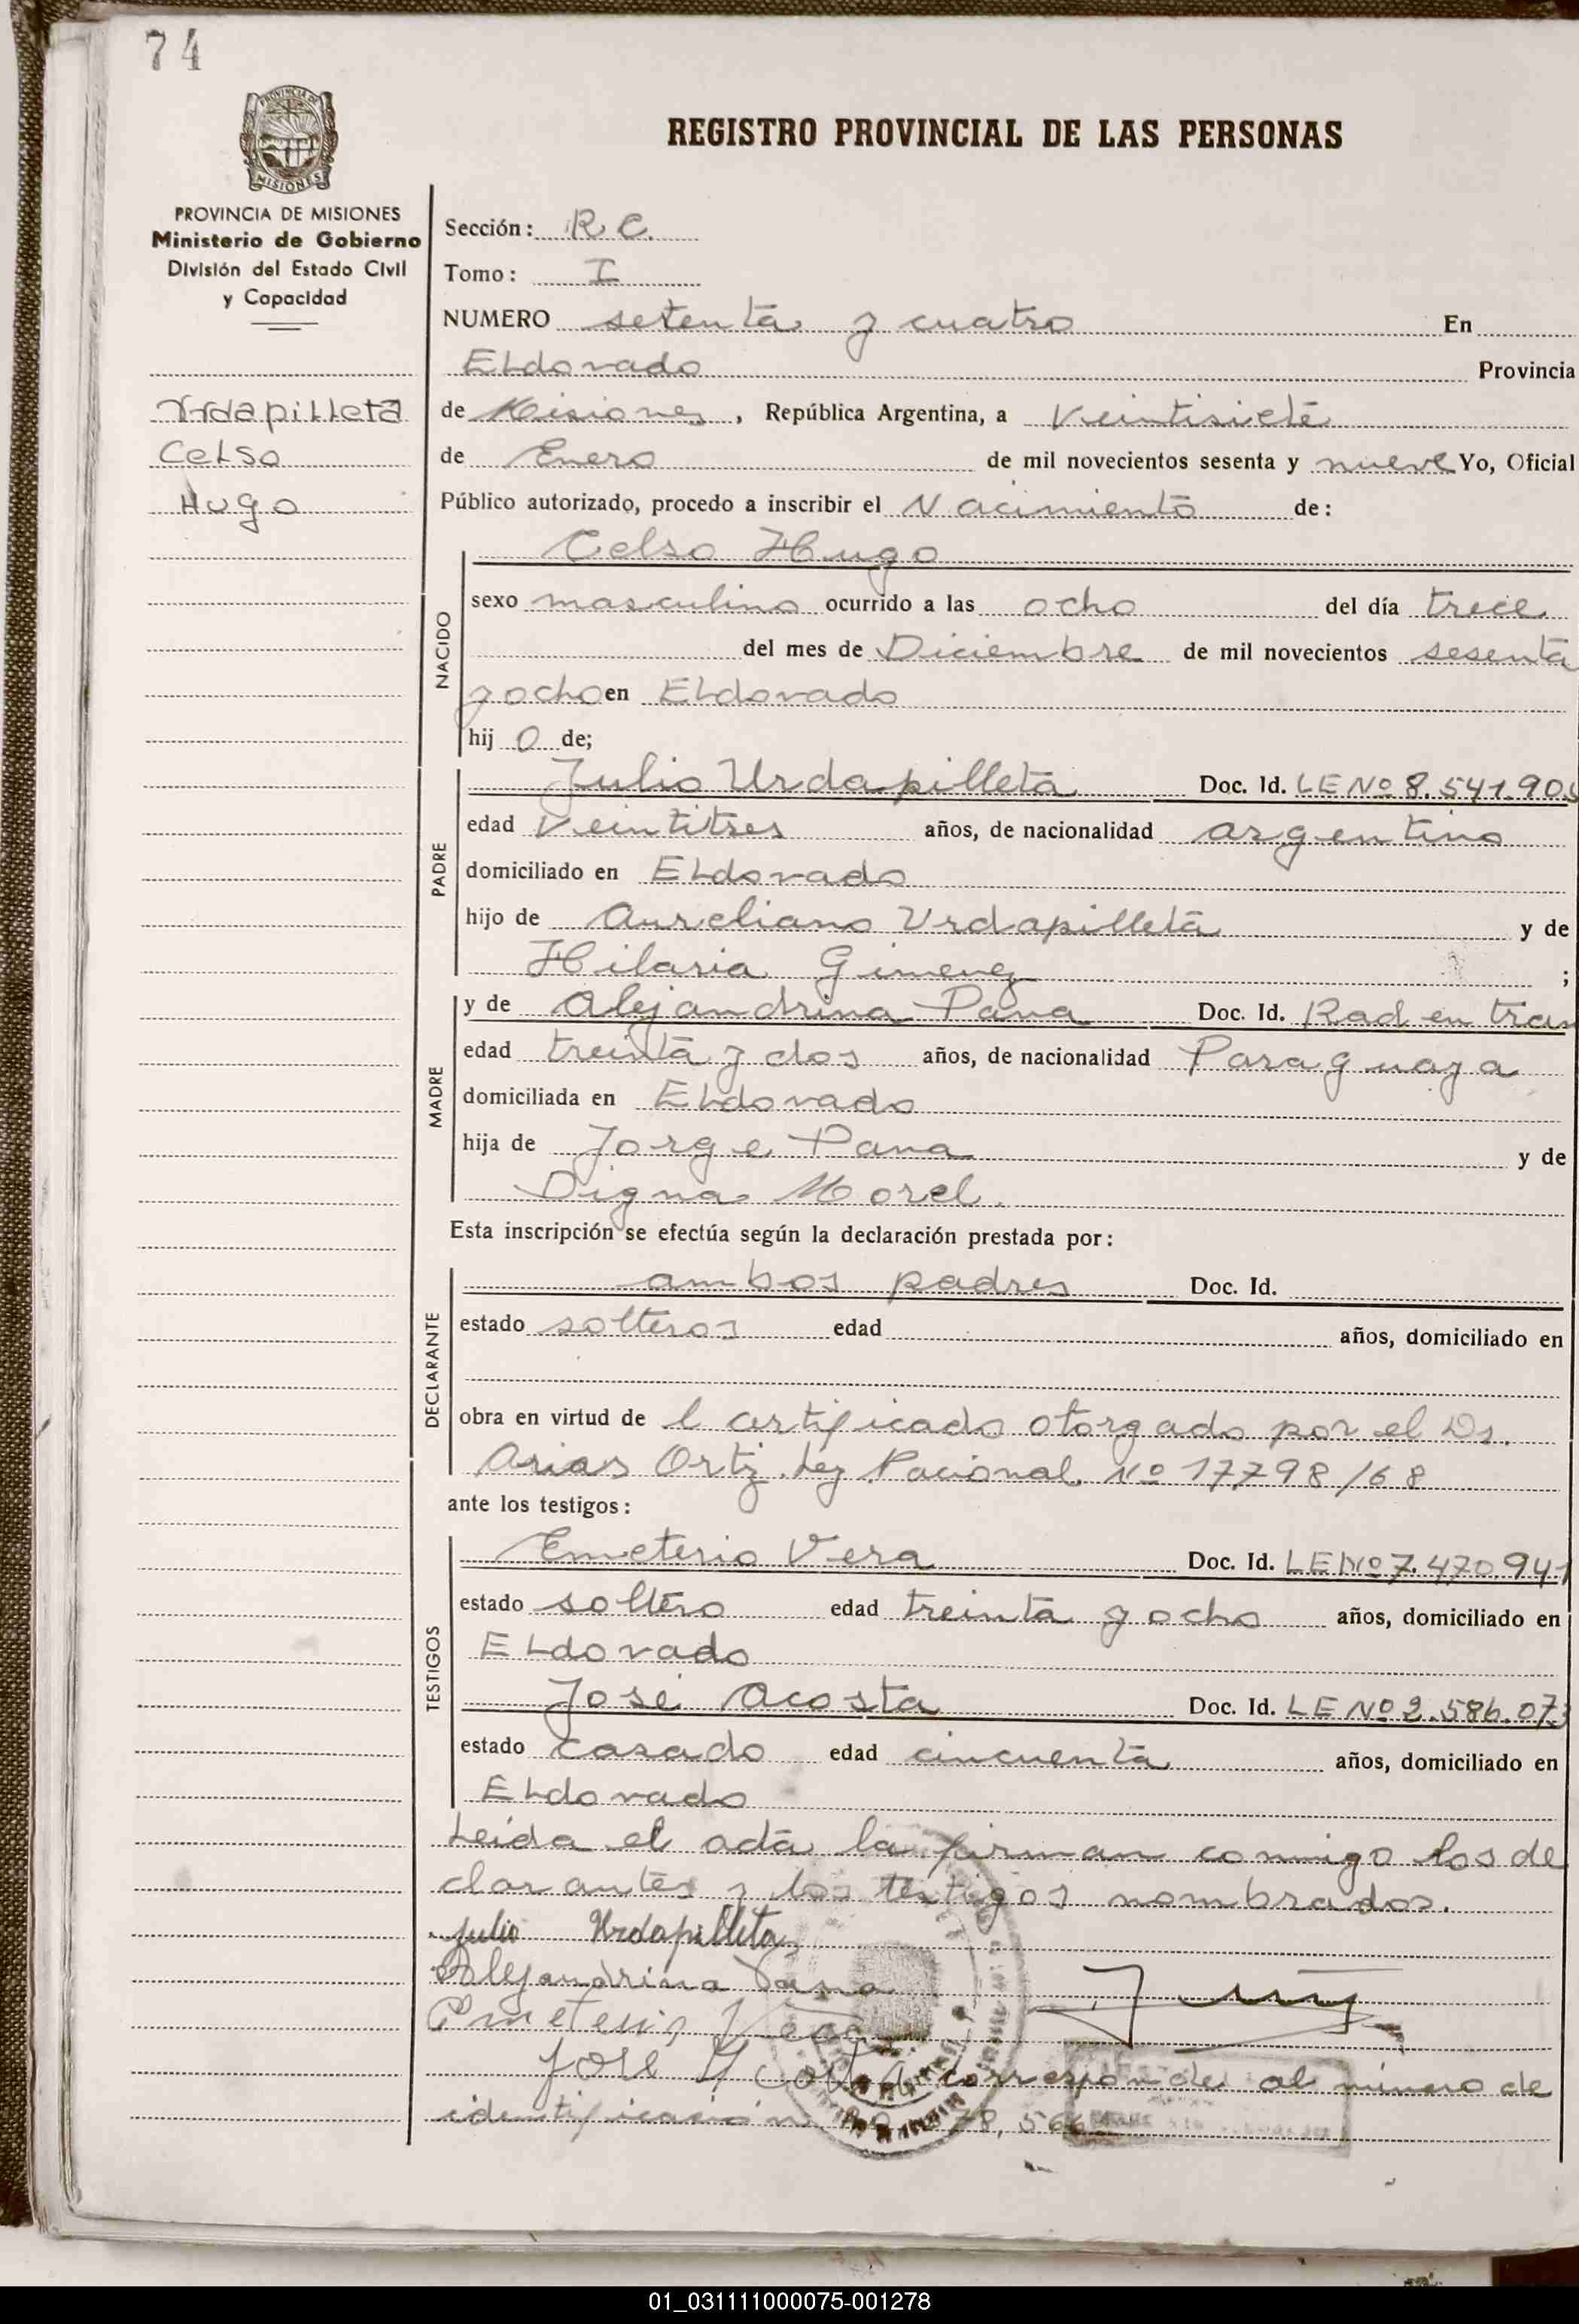 74
PROVINCIA DE MISIONES
REGISTRO PROVINCIAL DE LAS PERSONAS
PROVINCIA DE MISIONES
Ministerio de Gobierno
División del Estado Civil
y Capacidad
Urdapilleta
Celso
Hugo
Sección: R C.
Tomo: I
NUMERO setenta y cuatro En
ELdorado Provincia
de Misiones, República Argentina, a Veintisiete
de Enero de mil novecientos sesenta y nueve Yo, Oficial
Público autorizado, procedo a inscribir el Nacimiento de:
Celso Hugo
NACIDO
sexo masculino ocurrido a las ocho del día trece
del mes de Diciembre de mil novecientos sesenta
y ocho en ELdorado
hij o de;
PADRE
Julio Urdapilleta Doc. Id. LE Nº 8.541.90
edad Veintitres años, de nacionalidad argentino
domiciliado en ELdorado
hijo de Aureliano Urdapilleta y de
Hilaria Gimenez ;
MADRE
y de Alejandrina Pana Doc. Id. Rad en tram
edad treinta y dos años, de nacionalidad Paraguaya
domiciliada en ELdorado
hija de Jorge Pana y de
Digna Morel.
Esta inscripción se efectúa según la declaración prestada por:
DECLARANTE
ambos padres Doc. Id.
estado solteros edad años, domiciliado en
obra en virtud de l certificado otorgado por el Dr.
Arias Ortiz. Ley Nacional. Nº 17798/68
ante los testigos:
TESTIGOS
Emeterio Vera Doc. Id. LE Nº 7.470.941
estado soltero edad treinta y ocho años, domiciliado en
ELdorado
José Acosta Doc. Id. LE Nº 2.586.073
estado casado edad cincuenta años, domiciliado en
ELdorado
Leida el acta la firman conmigo los de
clarantes y los testigos nombrados.
Julio Urdapilleta
Alejandrina Pana
Emeterio Vera
José Acosta corresponde al número de
identificación 78,566
01_031111000075-001278